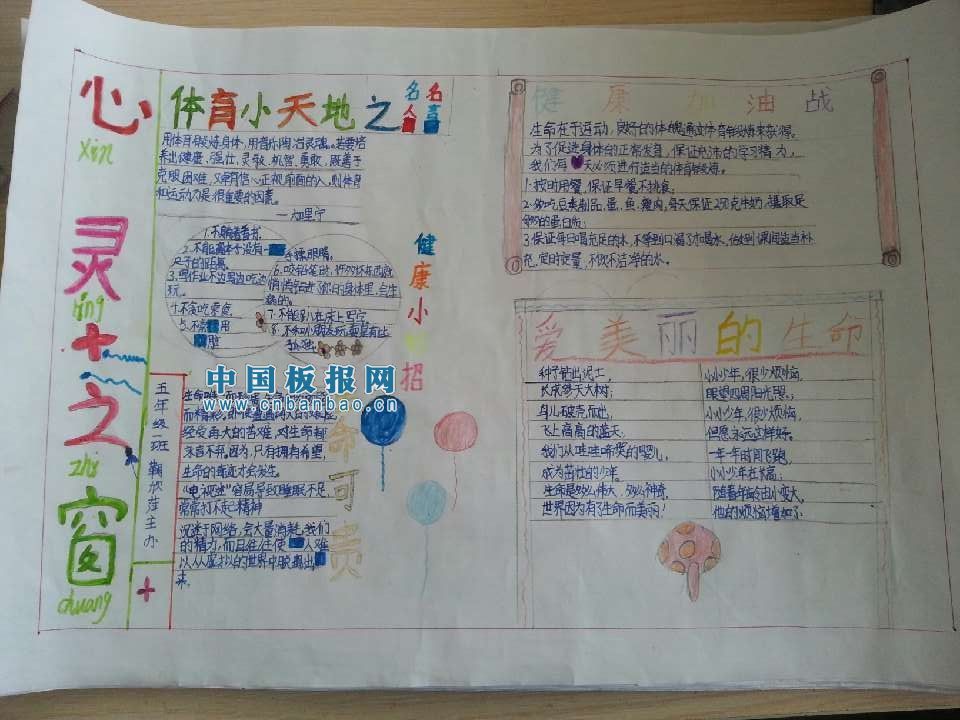 心
xīn
灵
líng
之
zhī
窗
chuang
五年级一班
主办
体育小天地之
名人
名言
用体育锻炼身体,用音乐陶冶灵魂。若要培
养出健康,强壮,灵敏,机智,勇敢,既善于
克服困难,又有信心正视前面的人,则体育
和运动乃是很重要的因素。
——加里宁
健康小
招
1.不躺着看书.
2.不能离本子没有一
尺子的距离.
3.写作业不边写边吃边
玩.
4.不贪吃零食
用
手揉眼睛.
6.咬铅笔时,
悄悄钻进你的身体里,会生
病的.
7.不能趴在床上写字
中国板报网
www.cnbanbao.cn
命可贵
经受再大的苦难,对生命都
永言不弃.因为,只有拥有希望,
生命的奇迹才会发生。
“电视迷”容易导致睡眠不足,
常常打不起精神
沉迷于网络,会大量消耗我们
的精力,而且往往使人难
以从虚拟的世界中脱离出
来.
健康加油战
生命在于运动,良好的体魄通过体育锻炼来获得。
为了促进身体的正常发育,保证充沛的学习精力,
我们每天必须进行适当的体育锻炼。
1.按时用餐,保证早餐不挑食;
2.多吃豆类制品,蛋、鱼、鸡肉,每天保证250克牛奶,摄取足
够的蛋白质;
3.保证每日喝充足的水,不等到口渴了才喝水,做到课间适当补
充,定时定量,不饮不洁净的水。
爱美丽的生命
种子钻出泥土,
长成参天大树;
鸟儿破壳而出,
飞上高高的蓝天;
我们从哇哇啼哭的婴儿,
成为茁壮的少年。
生命是多么伟大,多么神奇,
世界因为有了生命而美丽!
小小少年,很少烦恼,
眼望四周阳光照。
小小少年,很少烦恼,
但愿永远这样好。
一年一年时间飞跑,
小小少年在长高;
随着年龄由小变大,
他的烦恼增加了